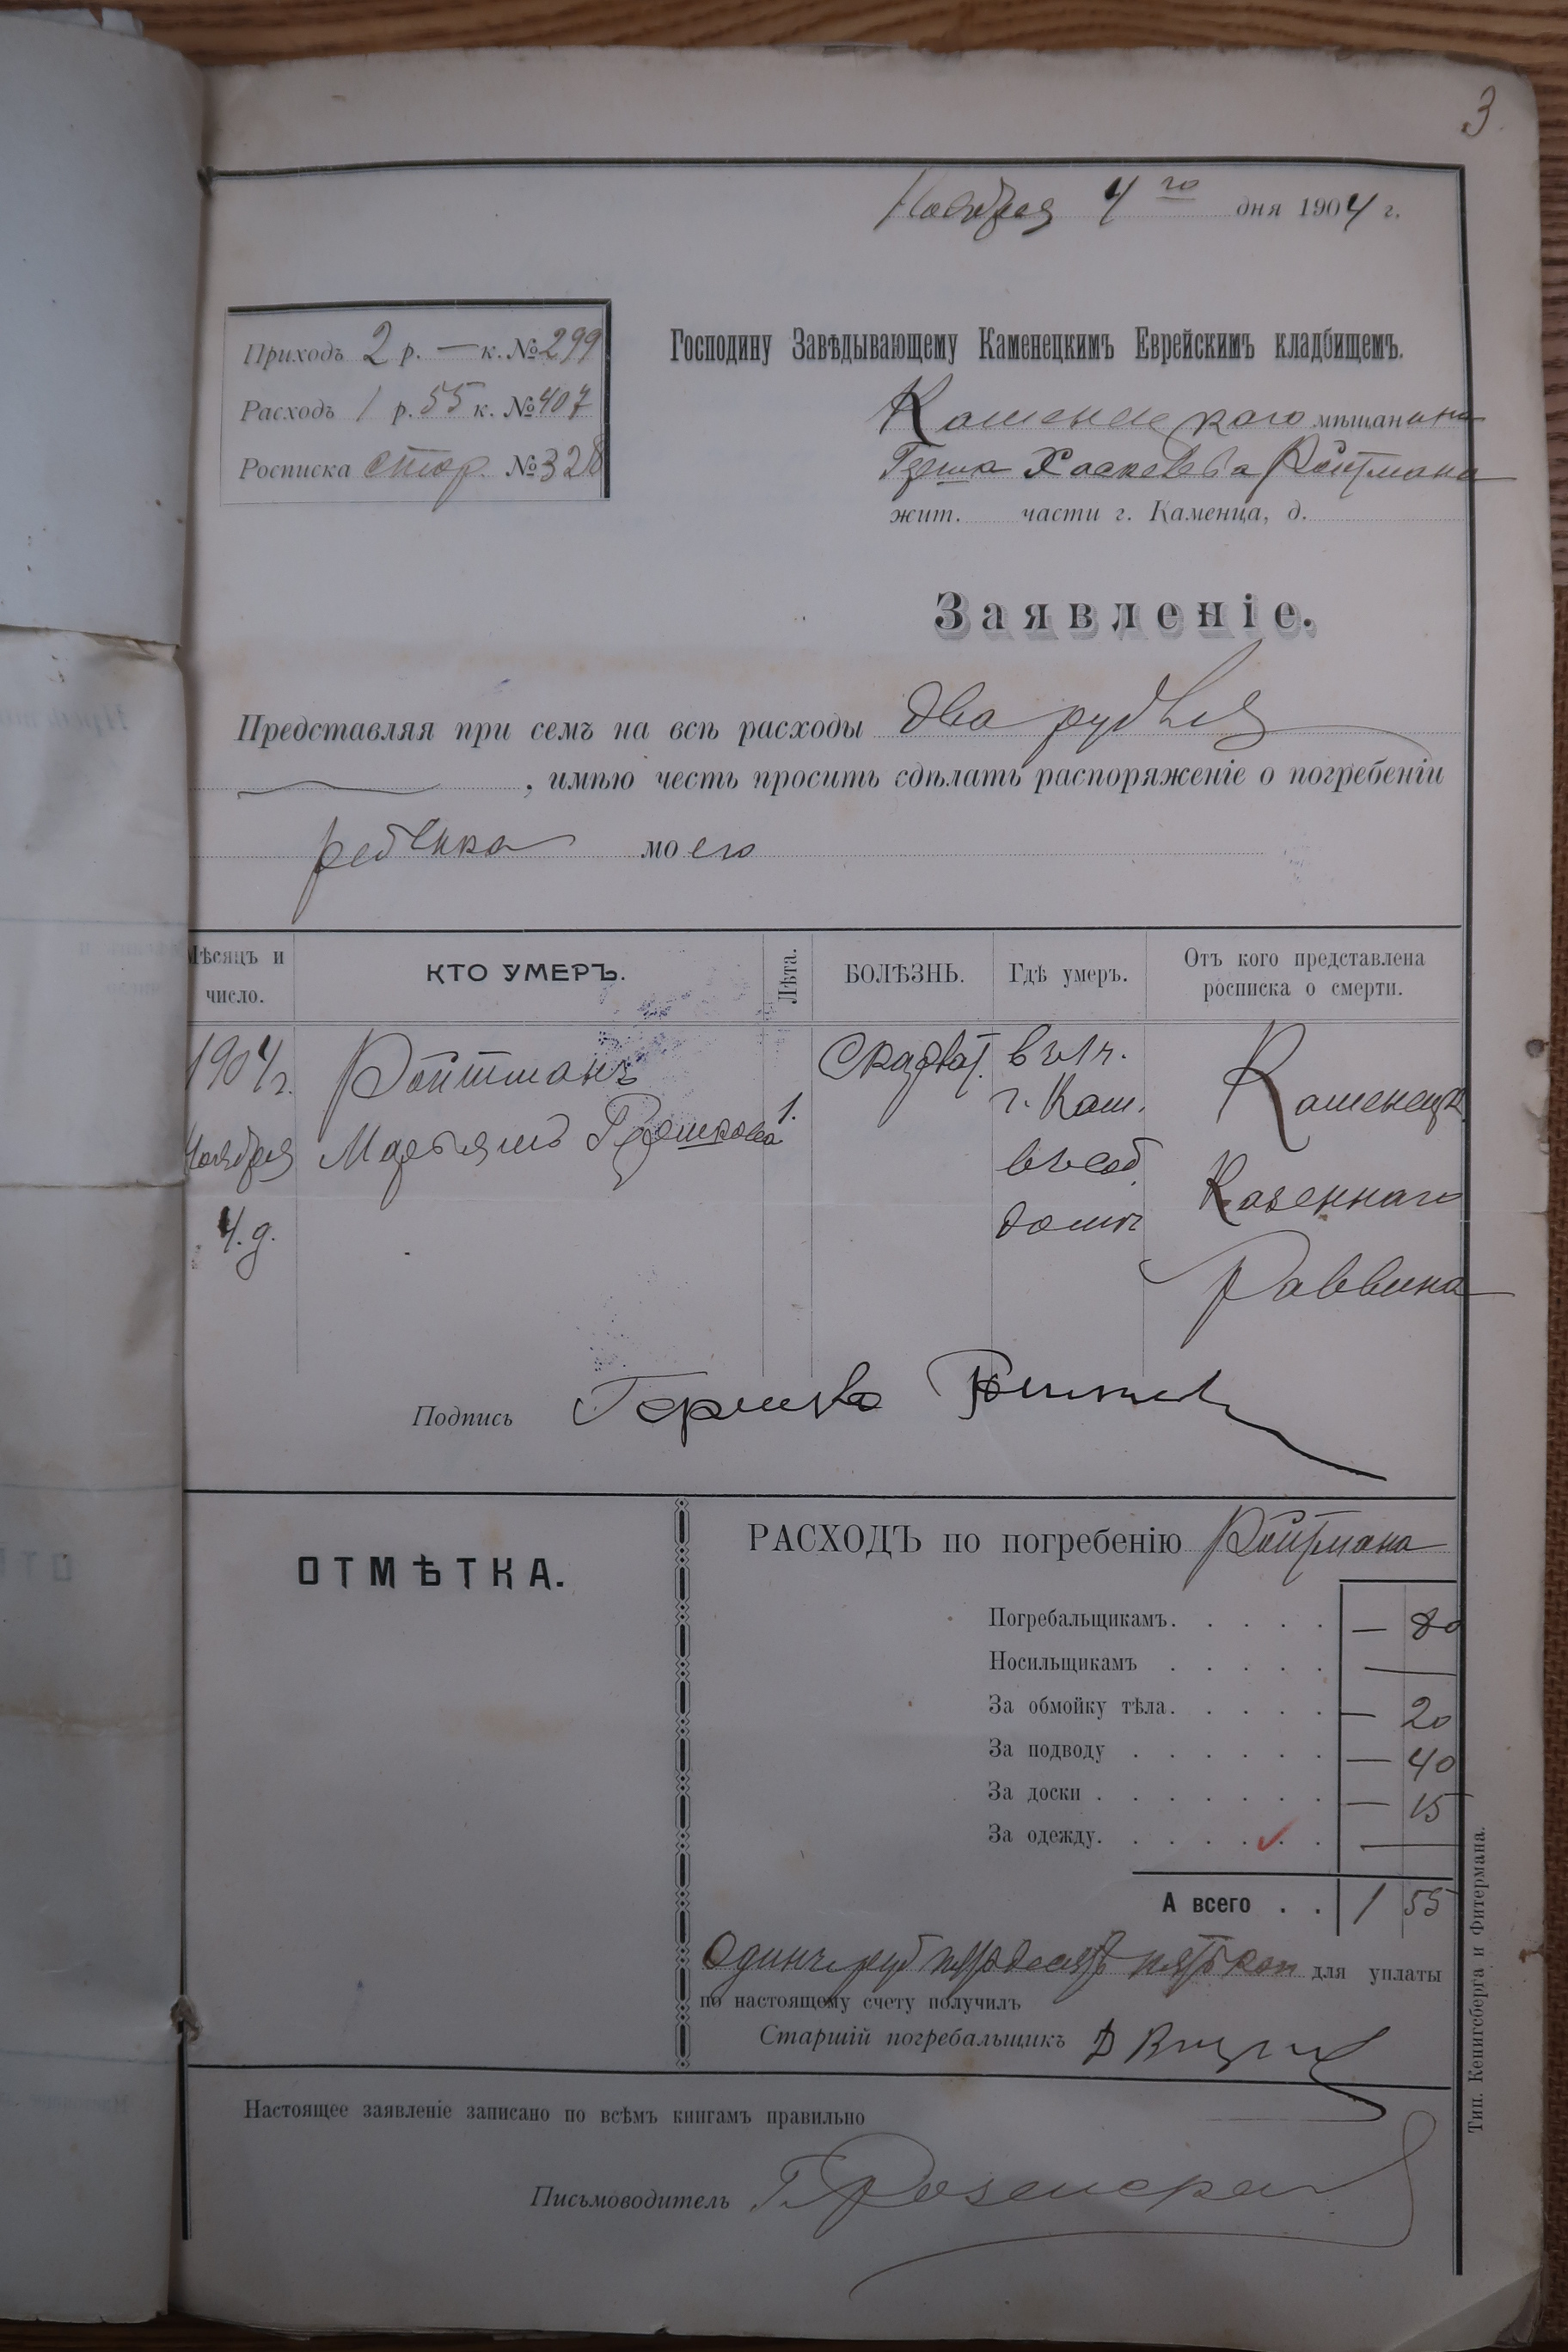 3
Ноября 4го дня 1904 г.
Приходъ 2 р. — к. № 299
Расходъ 1 р. 55 к. № 407
Росписка стор. № 328
Господину Завѣдывающему Каменецкимъ Еврейскимъ кладбищемъ.
Каменецкаго мѣщанина
Ройтмана
жит. части г. Каменца, д.
Заявленіе.
Представляя при семъ на всѣ расходы два рубля
, имѣю честь просить сдѣлать распоряженіе о погребеніи
ребенка моего
Мѣсяцъ и число.
КТО УМЕРЪ.
Лѣта.
БОЛѢЗНЬ.
Гдѣ умеръ.
Отъ кого представлена росписка о смерти.
1904 г.
Ноября
4. д.
Ройтманъ
1.
г. Кам.
въ соб.
домѣ
Каменецк
Казеннаго
Раввина
Подпись
ОТМѢТКА.
РАСХОДЪ по погребенію Ройтмана
Погребальщикамъ. . . . . — 80
Носильщикамъ . . . . . —
За обмойку тѣла. . . . . — 20
За подводу . . . . . . — 40
За доски . . . . . . . — 15
За одежду. . . . . . . —
А всего . . 1 55
Одинъ руб пятьдесятъ пять коп для уплаты
по настоящему счету получилъ
Старшій погребальщикъ
Настоящее заявленіе записано по всѣмъ книгамъ правильно
Письмоводитель
Тип. Кенигсберга и Фитермана.